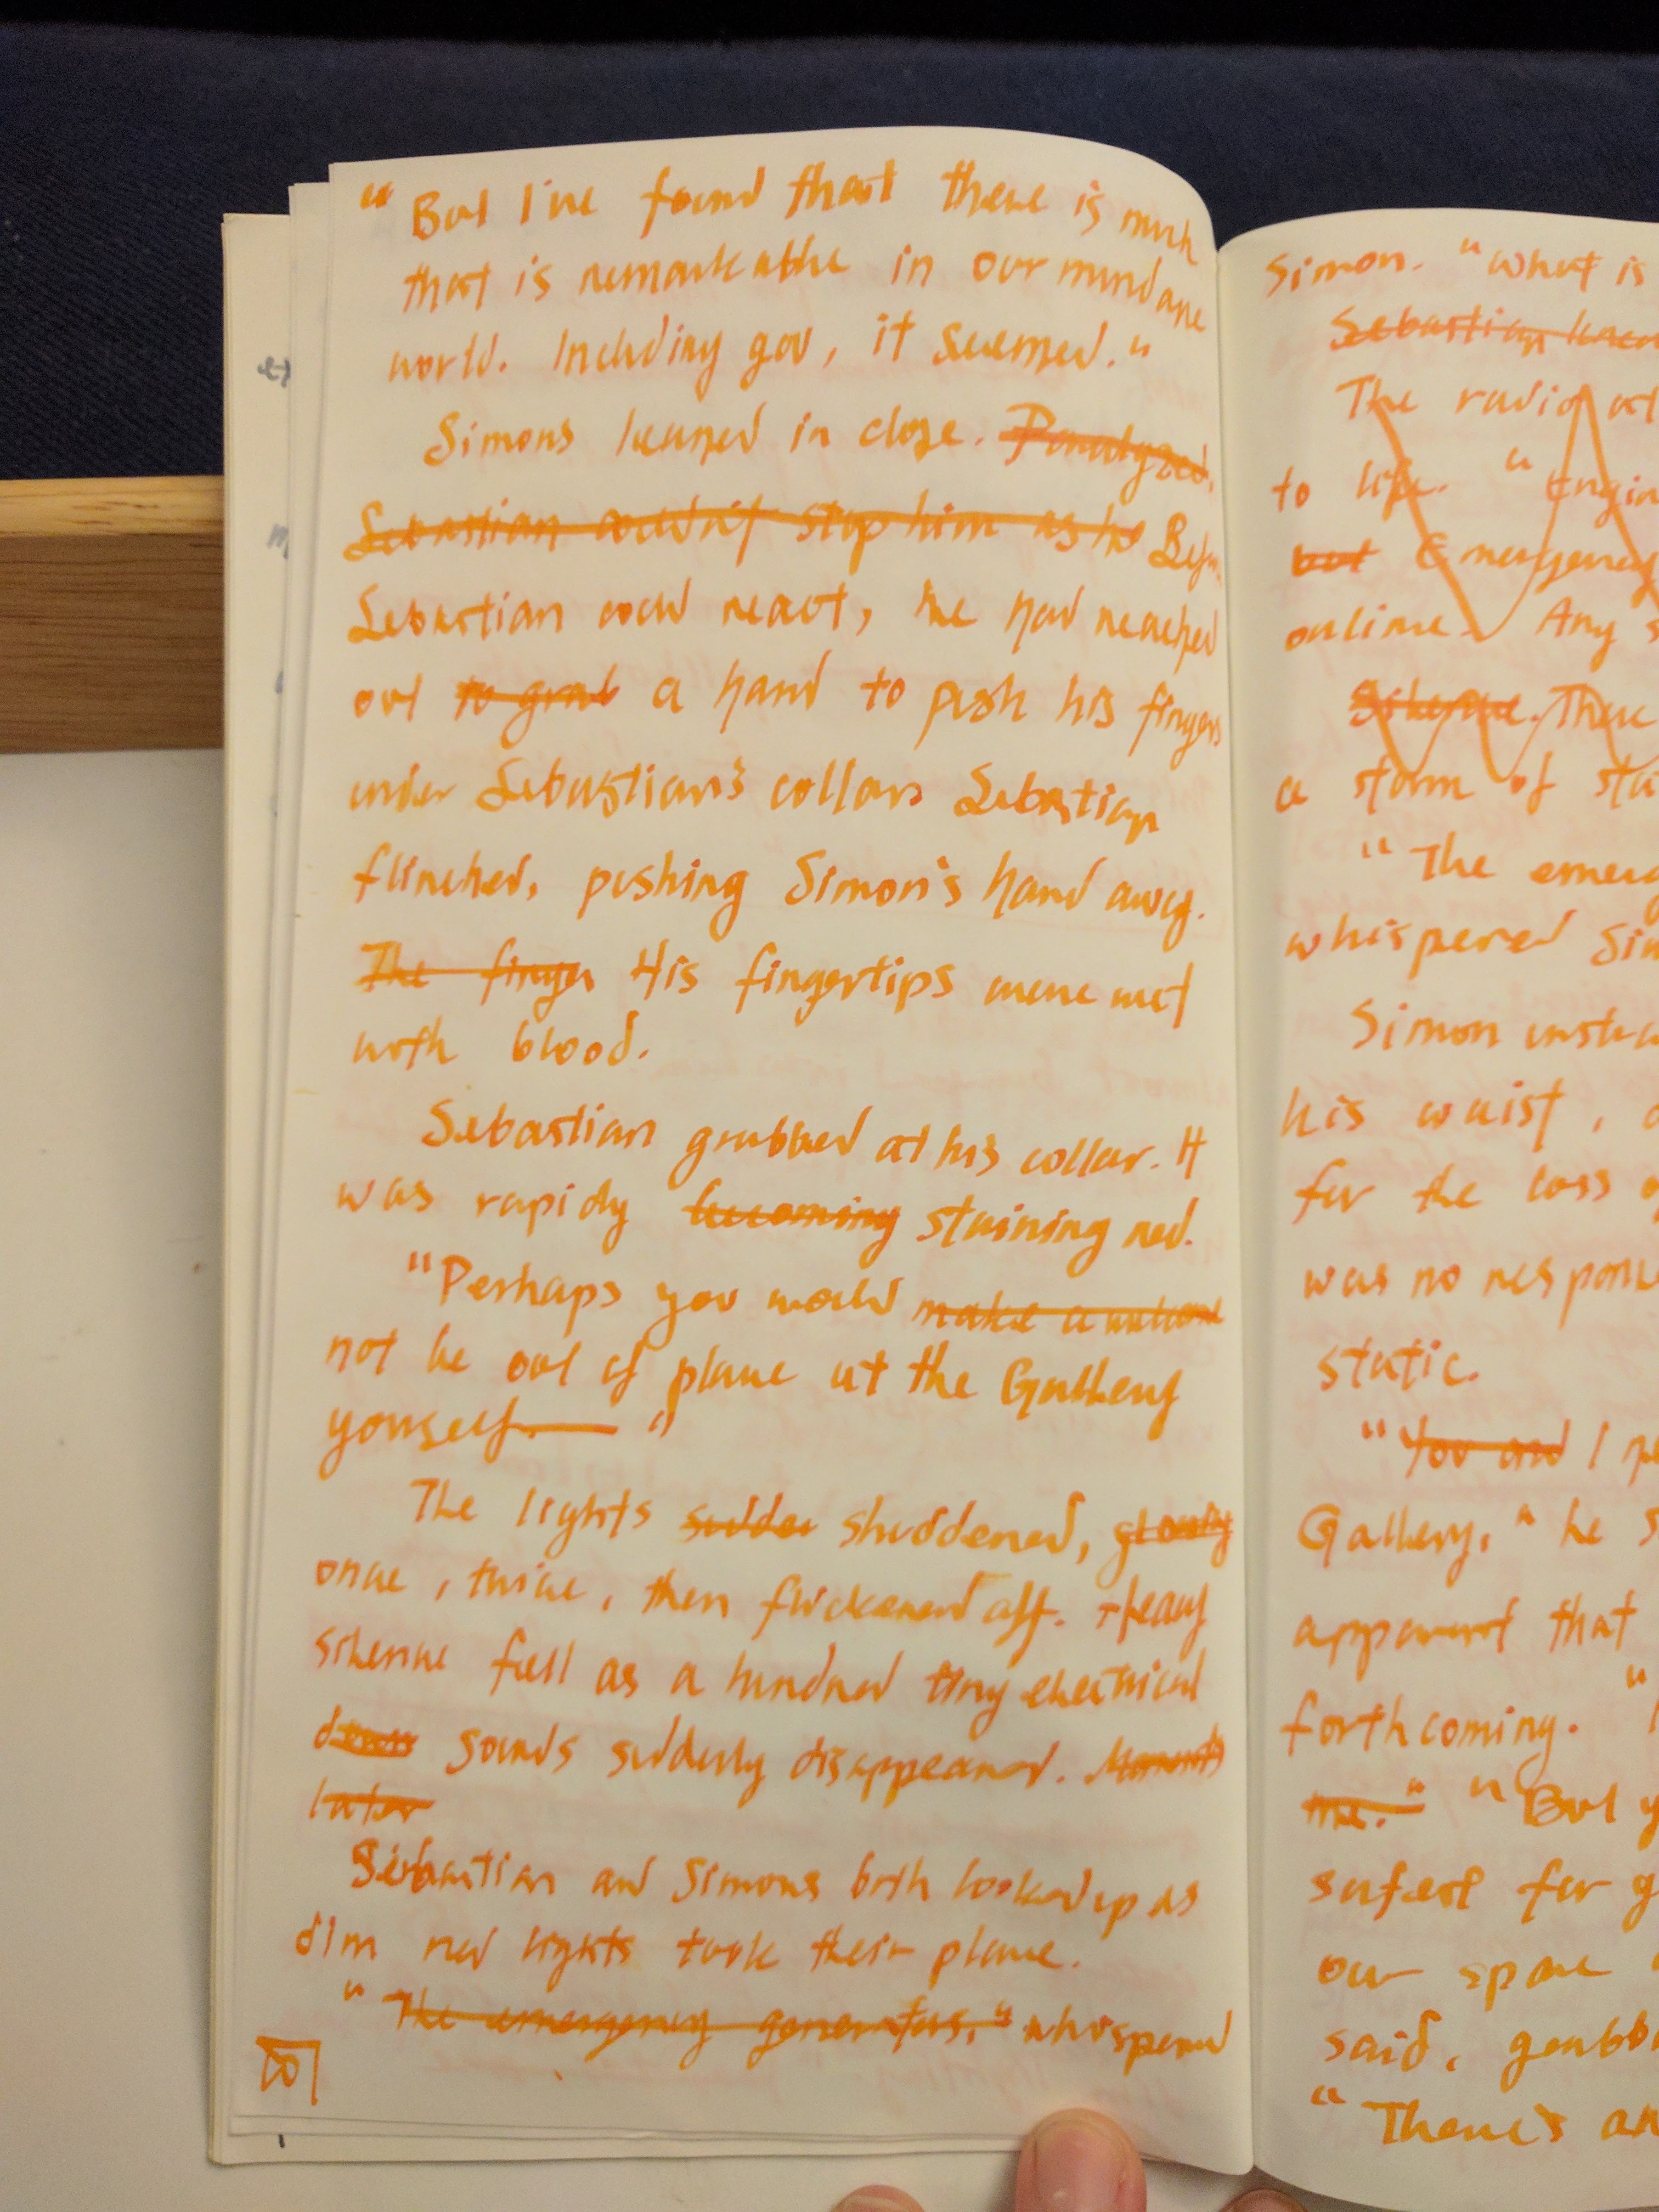 "But I've found that there is much
that is remarkable in our mundane
world. Including you, it seemed."
Simons leaned in close. Paralyzed,
Sebastian couldn't stop him as he Befo
Sebastian could react, he had reached
out to grab a hand to push his fingers
under Sebastian's collar. Sebastian
flinched, pushing Simon's hand away.
The finger His fingertips were wet
with blood.
Sebastian grabbed at his collar. It
was rapidly becoming staining red.
"Perhaps you would make a
not be out of place at the Gallery
yourself— "
The lights sudden shuddered,
once, twice, then flickered off. Heavy
silence fell as a hundred tiny electrical
sounds suddenly disappeared. Moments
later
Sebastian and Simons both looked up as
dim red lights took their place.
" The emergency generators," whispered
Simon. "What is
Sebastian
The radio
to life. "Engin
but Emergency
online. Any s
There
a storm of sta
"The emerg
whispered Sim
Simon instea
his waist,
for the loss
was no response
static.
"You and I
Gallery," he s
apparent that
forthcoming. "
me." "But y
safest for y
our space
said, grabb
"There's an